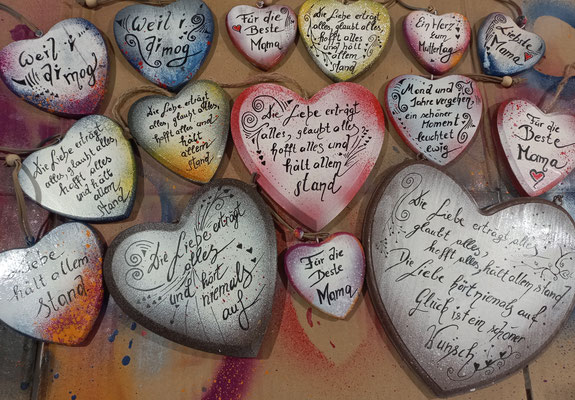 Weil i
di mog
Weil i
di mog
Für die
Beste
Mama
Die Liebe erträgt
alles, glaubt alles,
hofft alles
und hält
allem
stand
Ein Herz
zum
Muttertag
Liebste
Mama
Die Liebe erträgt
alles, glaubt alles,
hofft alles
und hält
allem
stand
Die Liebe erträgt
alles, glaubt alles,
hofft alles und
hält
allem
stand
Die Liebe erträgt
alles, glaubt alles,
hofft alles und
hält allem
stand
Mond und
Jahre vergehen,
ein schöner
Moment
leuchtet
ewig
Für die
Beste
Mama
Liebe
hält allem
stand
Die Liebe erträgt
alles
und hört
niemals
auf
Für die
Beste
Mama
Die Liebe erträgt alles,
glaubt alles,
hofft alles, hält allem stand
Die Liebe hört niemals auf.
Glück ist ein schöner
Wunsch